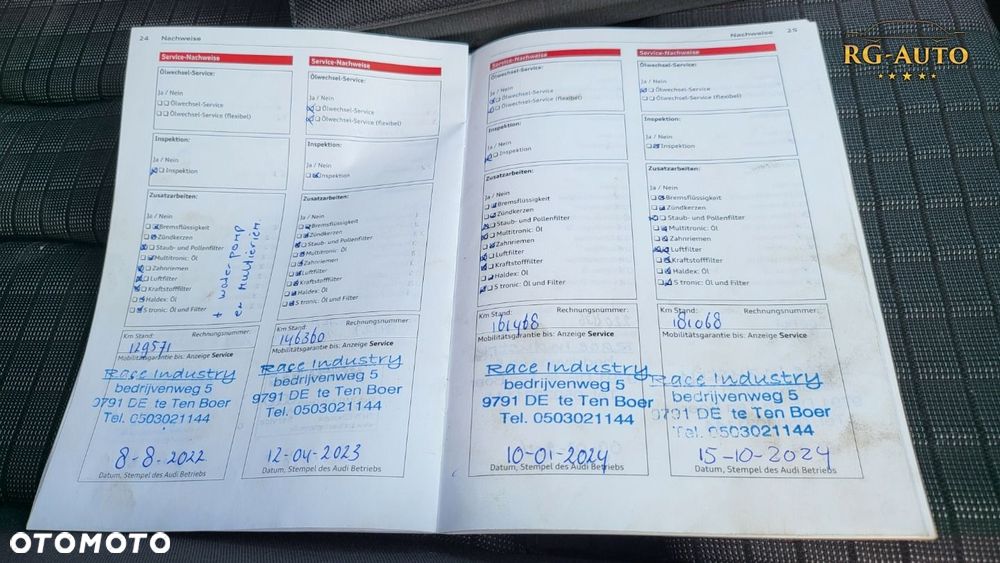 24 Nachweise
Service-Nachweise
Ölwechsel-Service:
Ja / Nein
Ölwechsel-Service
Ölwechsel-Service (flexibel)
Inspektion:
Ja / Nein
Inspektion
Zusatzarbeiten:
Ja / Nein
Bremsflüssigkeit
Zündkerzen
Staub- und Pollenfilter
Multitronic: Öl
Zahnriemen
Luftfilter
Kraftstofffilter
Haldex: Öl
S tronic: Öl und Filter
+ water pomp
en Multiériem
Km Stand: Rechnungsnummer:
129571
Mobilitätsgarantie bis: Anzeige Service
Race Industry
bedrijvenweg 5
9791 DE te Ten Boer
Tel. 0503021144
8-8-2022
Datum, Stempel des Audi Betriebs
Service-Nachweise
Ölwechsel-Service:
Ja / Nein
Ölwechsel-Service
Ölwechsel-Service (flexibel)
Inspektion:
Ja / Nein
Inspektion
Zusatzarbeiten:
Ja / Nein
Bremsflüssigkeit
Zündkerzen
Staub- und Pollenfilter
Multitronic: Öl
Zahnriemen
Luftfilter
Kraftstofffilter
Haldex: Öl
S tronic: Öl und Filter
Km Stand: Rechnungsnummer:
146360
Mobilitätsgarantie bis: Anzeige Service
Race Industry
bedrijvenweg 5
9791 DE te Ten Boer
Tel. 0503021144
12-04-2023
Datum, Stempel des Audi Betriebs
Nachweise 25
Service-Nachweise
Ölwechsel-Service:
Ja / Nein
Ölwechsel-Service
Ölwechsel-Service (flexibel)
Inspektion:
Ja / Nein
Inspektion
Zusatzarbeiten:
Ja / Nein
Bremsflüssigkeit
Zündkerzen
Staub- und Pollenfilter
Multitronic: Öl
Zahnriemen
Luftfilter
Kraftstofffilter
Haldex: Öl
S tronic: Öl und Filter
Km Stand: Rechnungsnummer:
161468
Mobilitätsgarantie bis: Anzeige Service
Race Industry
bedrijvenweg 5
9791 DE te Ten Boer
Tel. 0503021144
10-01-2024
Datum, Stempel des Audi Betriebs
Service-Nachweise
Ölwechsel-Service:
Ja / Nein
Ölwechsel-Service
Ölwechsel-Service (flexibel)
Inspektion:
Ja / Nein
Inspektion
Zusatzarbeiten:
Ja / Nein
Bremsflüssigkeit
Zündkerzen
Staub- und Pollenfilter
Multitronic: Öl
Zahnriemen
Luftfilter
Kraftstofffilter
Haldex: Öl
S tronic: Öl und Filter
Km Stand: Rechnungsnummer:
181068
Mobilitätsgarantie bis: Anzeige Service
Race Industry
bedrijvenweg 5
9791 DE te Ten Boer
Tel. 0503021144
15-10-2024
Datum, Stempel des Audi Betriebs
RG-AUTO
OTOMOTO